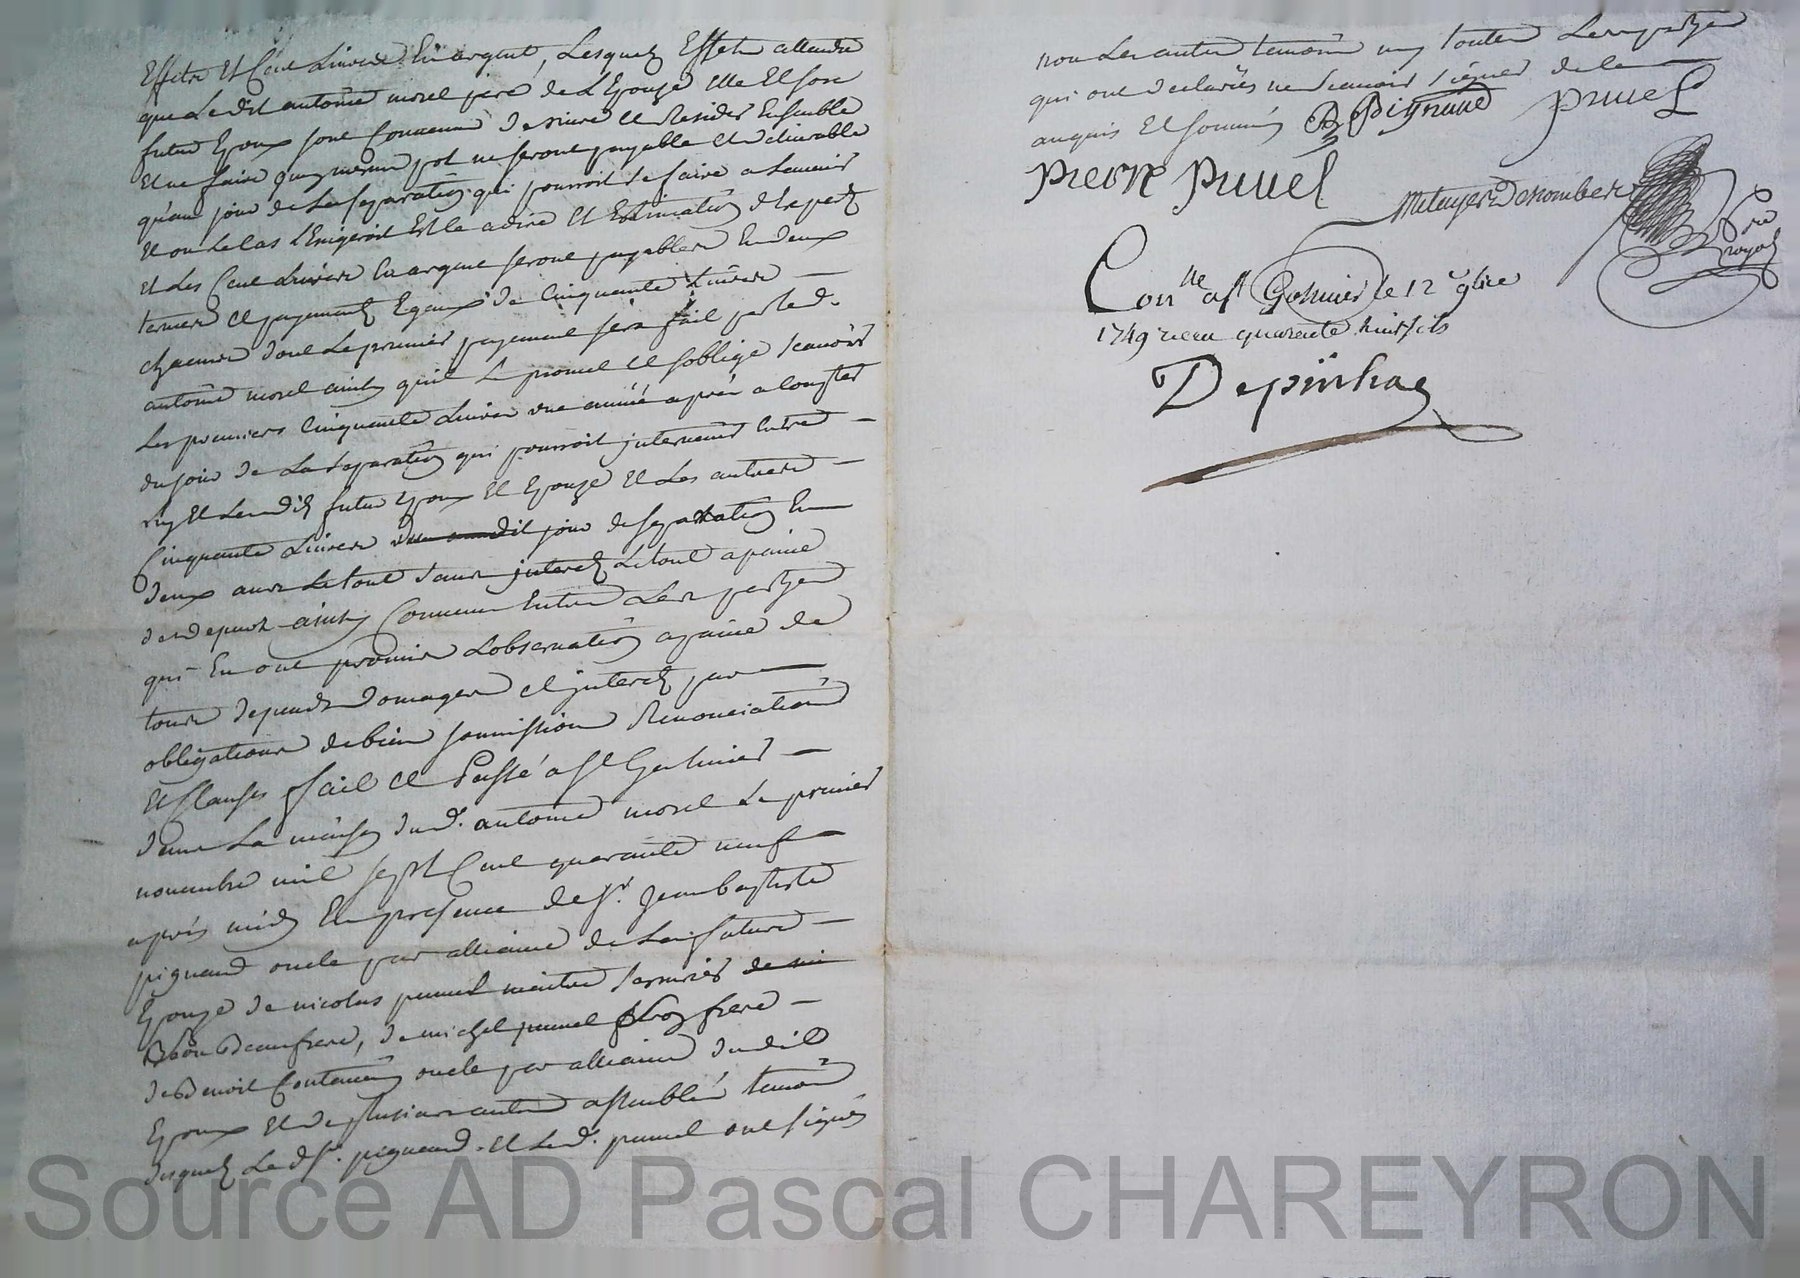 Effets Et Cent Livres En argent, Lesquels Effets attendu
que Ledit antoine morel pere de L'Epouze Elle Et son
futur Epoux sont Convenus de vivre et Resider Ensemble
Et ne faire qu'un mesme pot ne seront payable et delivrable
qu'au jour de La separation qui pourroit se faire a Lauenir
Et ou Le Cas L'Exigeroit Et la a dire Et Estimation d'Experts
et Les Cent Livres En argent seront payables En deux
termes et payements Egaux de Cinquante Livres
chacuns dont Le premier payement sera fait par led.
antoine morel ainsy quil Le promet et soblige scauoir
Les premiers Cinquante Livres une année aprés a Compter
du jour de La separation qui pourroit jntervenir Entre
luy Et Lesdits futur Epoux Et Epouze Et Les autres
Cinquante Livres dudit jour de separation En
deux ans Le tout sans jnterets Le tout a paine
des depens ainsy Convenu Entre Les parties
qui En ont promis Lobservation a paine de
tous depends domages et jnterets par
obligations de biens soumissions Renonciations
Et Clauses fait et Passé a St Galmier
dans La maison dud. antoine morel Le premier
novembre mil sept Cent quarante neuf
aprés midy En presence de Sr. Jean baptiste
pignaud oncle par alliance de La future
Epouze de nicolas prunel maitre serrurier
son Beaufrere, de michel prunel son frere
de Benoit oncle par alliance dudit
Epoux Et de plusieurs autres assemblés temoins
desquels Le dt Sr. pignaud Et Led. prunel ont signés
non Les autres temoins ny toutes Les parties
qui ont declarés ne scauoir signer de ce
enquis Et sommés B Pignaud pruuel
pierre pruuel
Metayer Denombret
Nre royal
Con.lle a St Galmier le 12 9bre
1749 recu quarante huit sols
Depinhac
Source AD Pascal CHAREYRON